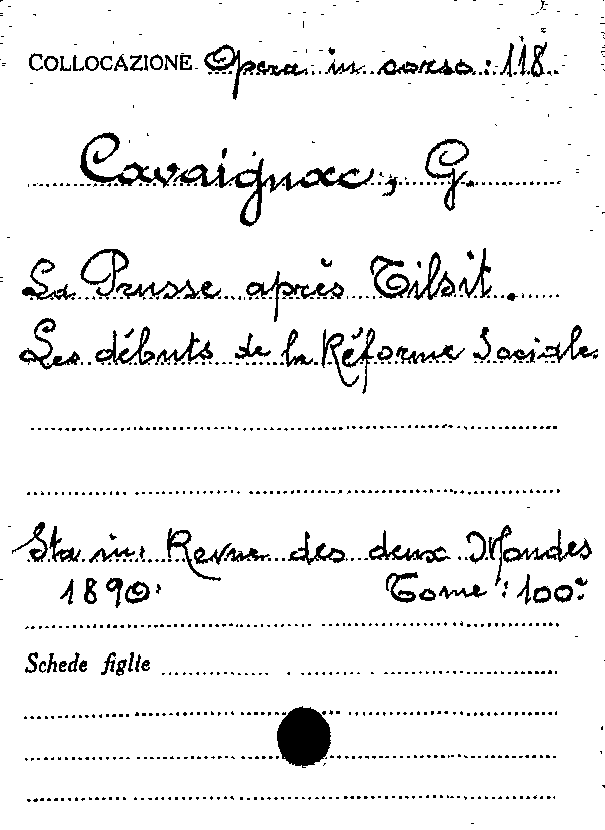 COLLOCAZIONE Opera in corso: 118
Cavaignac, G.
La Prusse après Tilsit.
Les débuts de la Réforme Sociale.
Sta in: Revue des deux Mondes
1890. Tome: 100º
Schede figlie